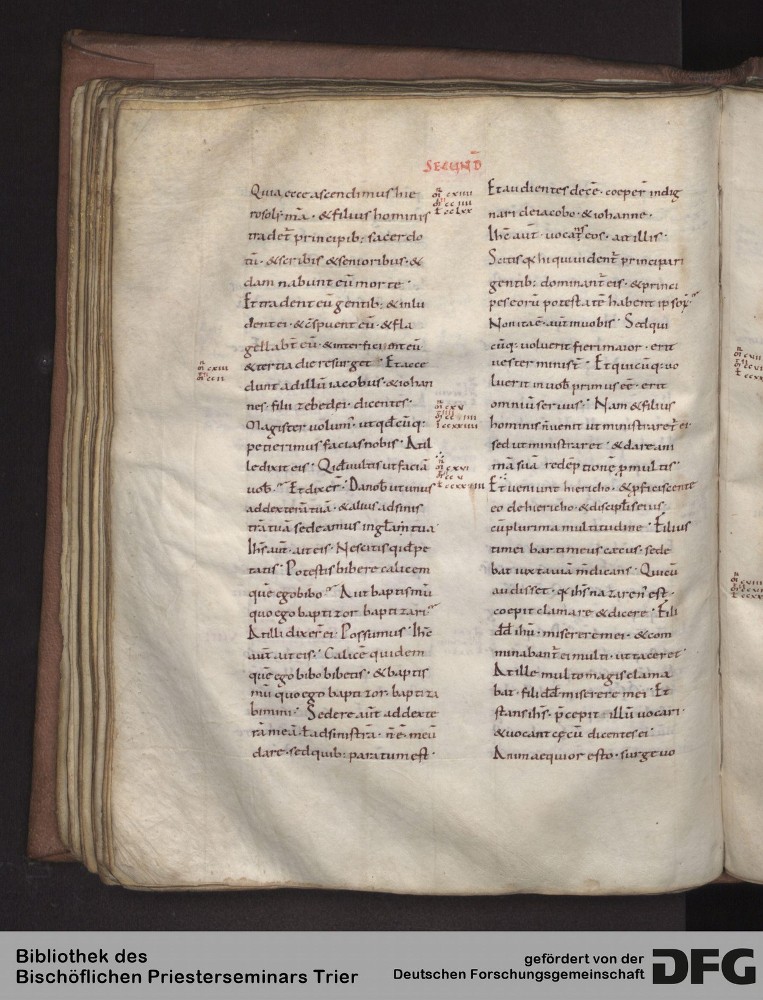 SECUND̄
Quia ecce ascendimus hie
rosolimā · & filius hominis
tradet̄ principib; sacerdo
tū · & scribis & senioribus · &
damnabunt eū morte ·
Et tradent eū gentib; & inlu
dent ei · & c̄spuent eū · & fla
gellabt̄ eū · & interficient eū
& tertia die resurget · Et acce
dunt ad illū iacobus · & iohan
nes · filii zebedei · dicentes ·
Magister volum᾽ ut qđcūq·
petierimus facias nobis · At il
le dixit eis · Qid uultis ut faciā
uob᾽ · Et dixer̄ · Da nob᾽ ut unus
ad dexterā tuā · & alius ad sinis
trā tuā sedeamus in gła tua
Ihs̄ aūt · ait eis · Nescitis quid pe
tatis · Potestis bibere calicem
quē ego bibo · Aut baptismū
quo ego baptizor · baptizari
At illi dixer̄ ei · Possumus · Ihs̄
aūt ait eis · Calicē quidem
quē ego bibo bibetis · & baptis
mū quo ego baptizor · baptiza
bimini · Sedere aūt ad dexte
rā meā · ł ad sinistrā · n̄ ē · meū
dare · sed quib; paratum est ·
Et audientes decē · coeper̄ indig
nari de iacobo · & iohanne ·
Ihs̄ aūt · vocans eos · ait illis ·
Scitis q̄ hi qui uident̄ principari
gentib; dominant̄ eis · & princi
pes eorū potestatē habent ipsoꝝ
Non ita ē · aūt in uobis · Sed qui
cūq· voluerit fieri maior · erit
uester minist̄ · Et quicūq· uo
luerit in uob᾽ primus eē · erit
omniū seruus · Nam & filius
hominis n̄ uenit ut ministraret̄ ei
sed ut ministraret · & dare ani
mā suā redēptionē p multis
Et ueniunt hiericho · & pficiscente
eo de hiericho · & discipłis eius
& cū plurima multitudine · Filius
timei bartimeus cęcus · sede
bat iuxta uiā mdicans · Qui cū
audisset · q̄ ihs̄ nazaren᾽ est ·
coepit clamare & dicere · Fili
dd̄ ihū · miserere mei · & com
minabant̄ ei multi · ut taceret ·
At ille multo magis clama
bat · fili dd̄ miserere mei · Et
stans ihs̄ · p̄cepit illū uocari ·
& uocant cęcū dicentes ei ·
Animaequior esto · surge uo
Bibliothek des
Bischöflichen Priesterseminars Trier
gefördert von der
Deutschen Forschungsgemeinschaft
DFG